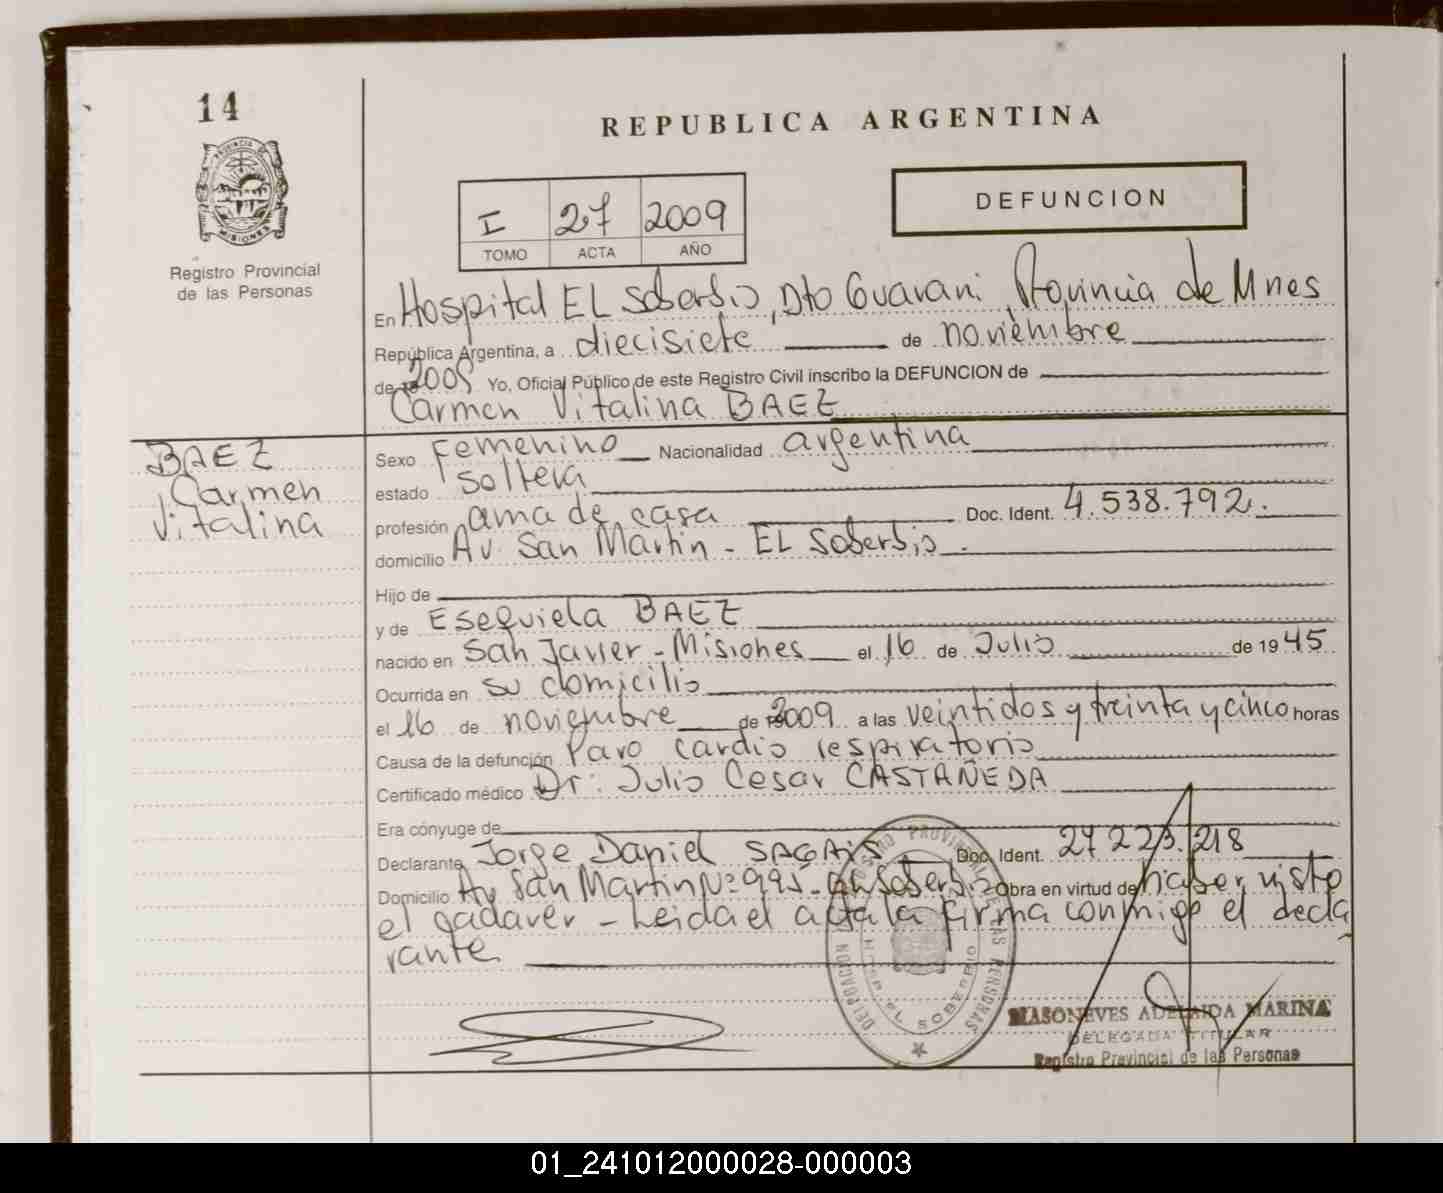 14
REPUBLICA ARGENTINA
DEFUNCION
I 27 2009
TOMO ACTA AÑO
Registro Provincial
de las Personas
En Hospital EL Soberbio, Dto Guarani Provincia de Mnes
República Argentina, a diecisiete de noviembre
de 2009 Yo, Oficial Público de este Registro Civil inscribo la DEFUNCION de
Carmen Vitalina BAEZ
BAEZ
Carmen
Vitalina
Sexo Femenino Nacionalidad argentina
estado soltera
profesión ama de casa Doc. Ident. 4.538.792.
domicilio Av. San Martin - EL Soberbio.
Hijo de
y de Esequiela BAEZ
nacido en San Javier - Misiones el 16 de Julio de 1945
Ocurrida en su domicilio
el 16 de noviembre de 2009 a las veintidos y treinta y cinco horas
Causa de la defunción Paro cardio respiratorio
Certificado médico Dr: Julio Cesar CASTAÑEDA
Era cónyuge de
Declarante Jorge Daniel Doc. Ident. 27 223.218
Domicilio Av San Martin Nº 995 - El Soberbio Obra en virtud de haber visto
el cadaver - Leida el acta la firma conmigo el decla
rante
REGISTRO PROVINCIAL DE LAS PERSONAS
EL SOBERBIO
MASONEVES ADELAIDA MARINA
DELEGADA TITULAR
Registro Provincial de las Personas
01_241012000028-000003